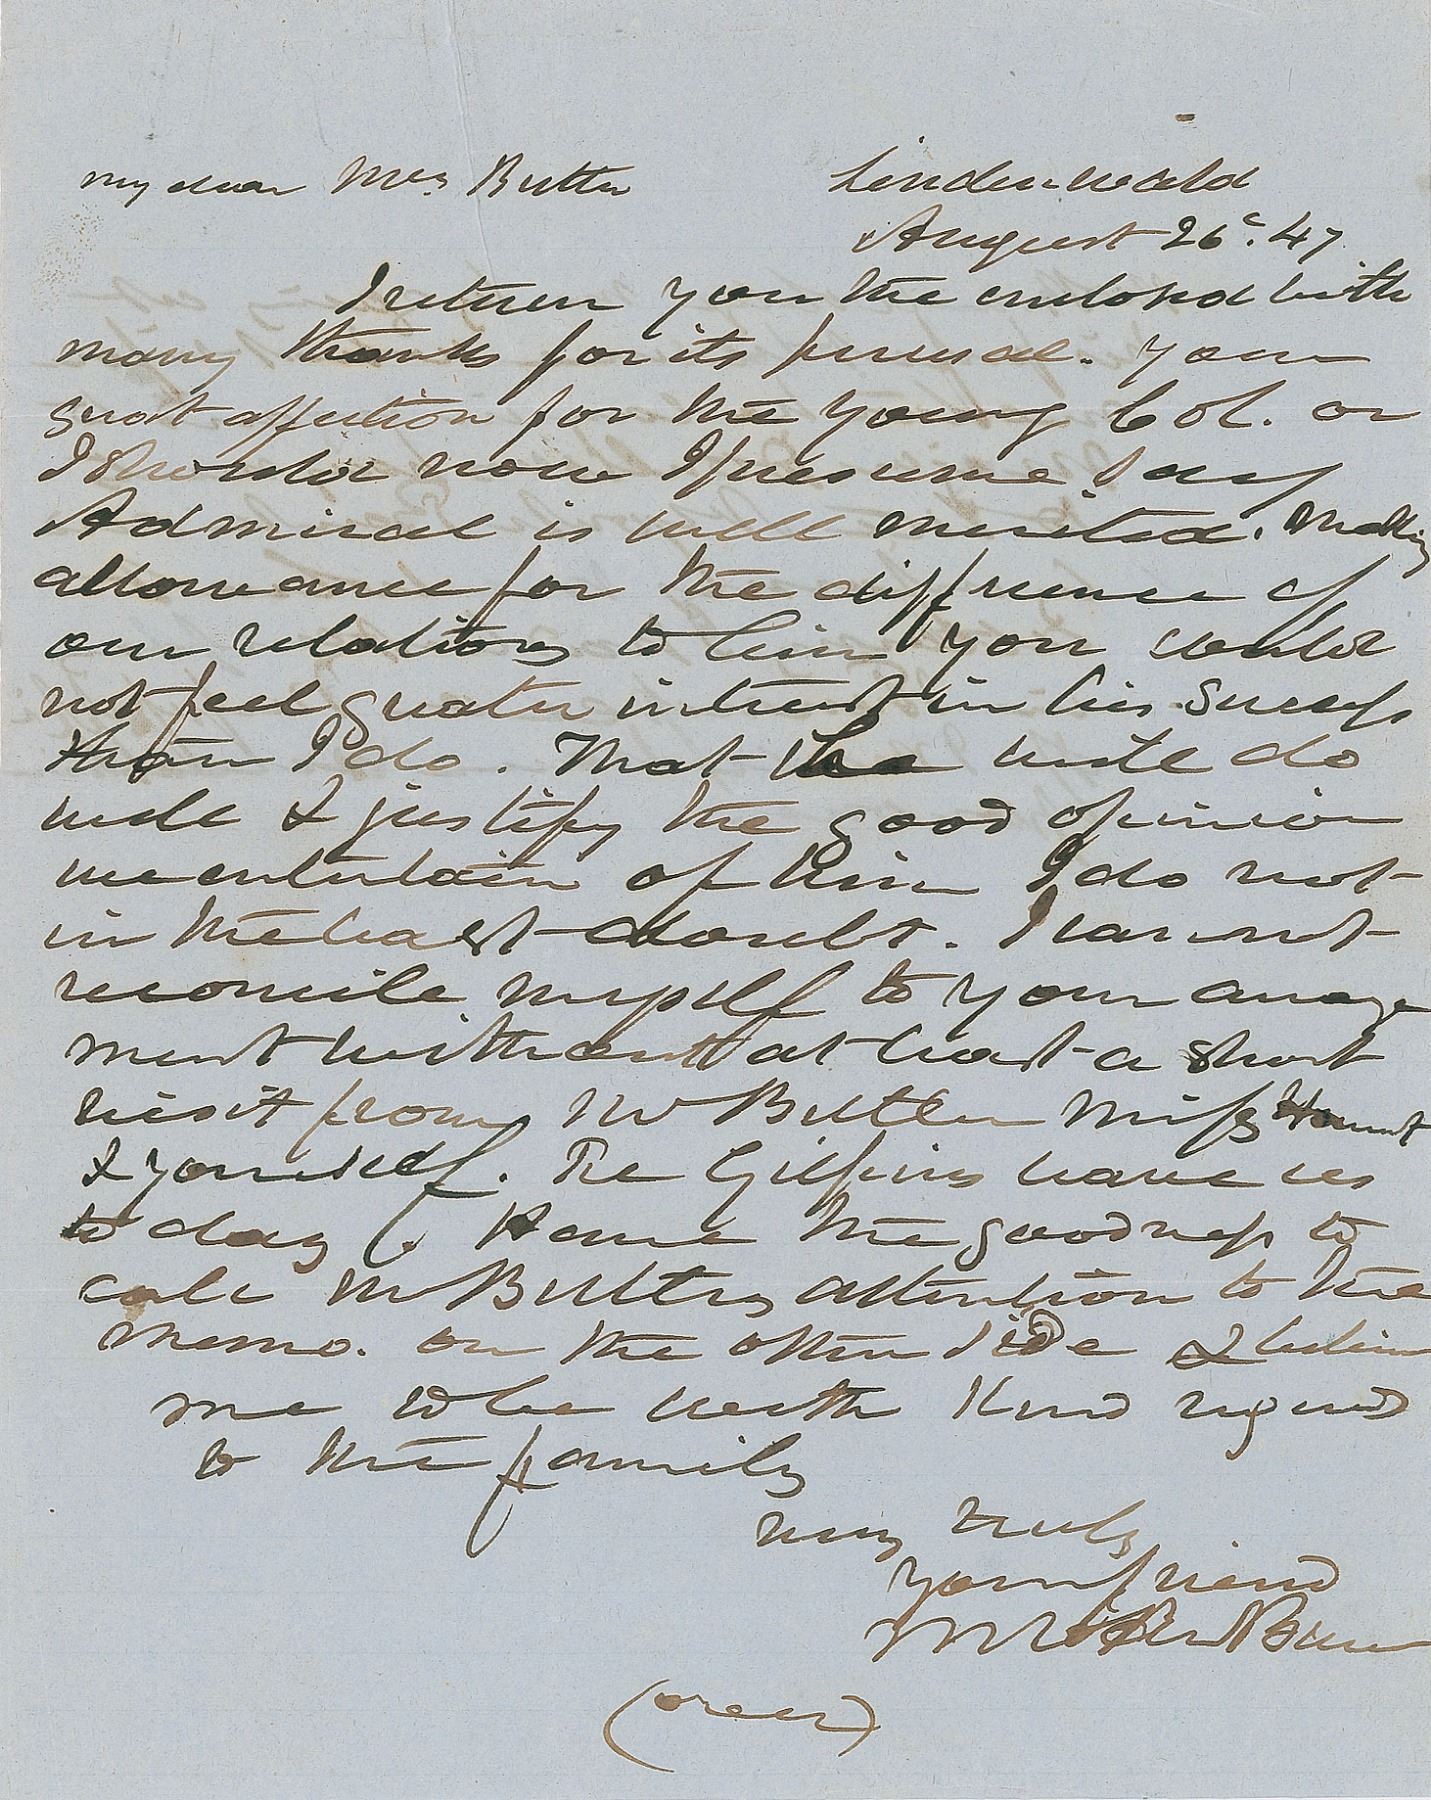 My dear Mrs Butler
Lindenwald
August 26th. 47
I return you the enclosed with
many thanks for its perusal. Your
great affection for the young Col. or
I should now I presume say
Admiral is well merited. Making
allowance for the difference of
our relations to him you could
not feel greater interest in his success
than I do. That he will do
well & justify the good opinion
we entertain of him I do not
in the least doubt. I can not
reconcile myself to your arrange
ment without at least a short
visit from Mr Butler Miss Harriet
& yourself. The Gilpins leave us
to day. Have the goodness to
call Mr Butlers attention to the
memo. on the other side & believe
me to be with kind regards
to the family
very truly
your friend
M Van Buren
(over)